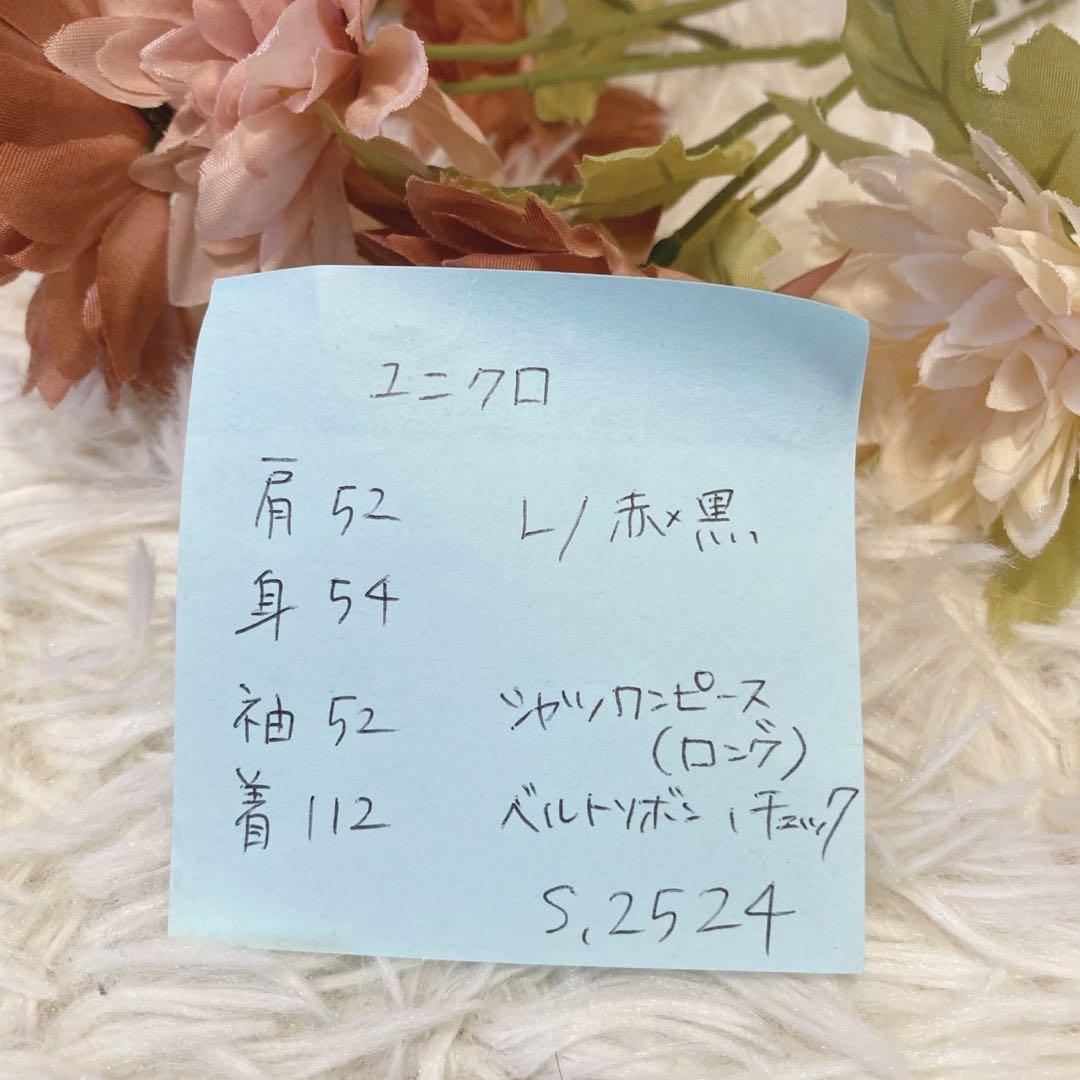 ユニクロ
肩 52 L/赤×黒
身 54
袖 52 シャツワンピース
(ロング)
着 112 ベルトリボン,チェック
S,2524